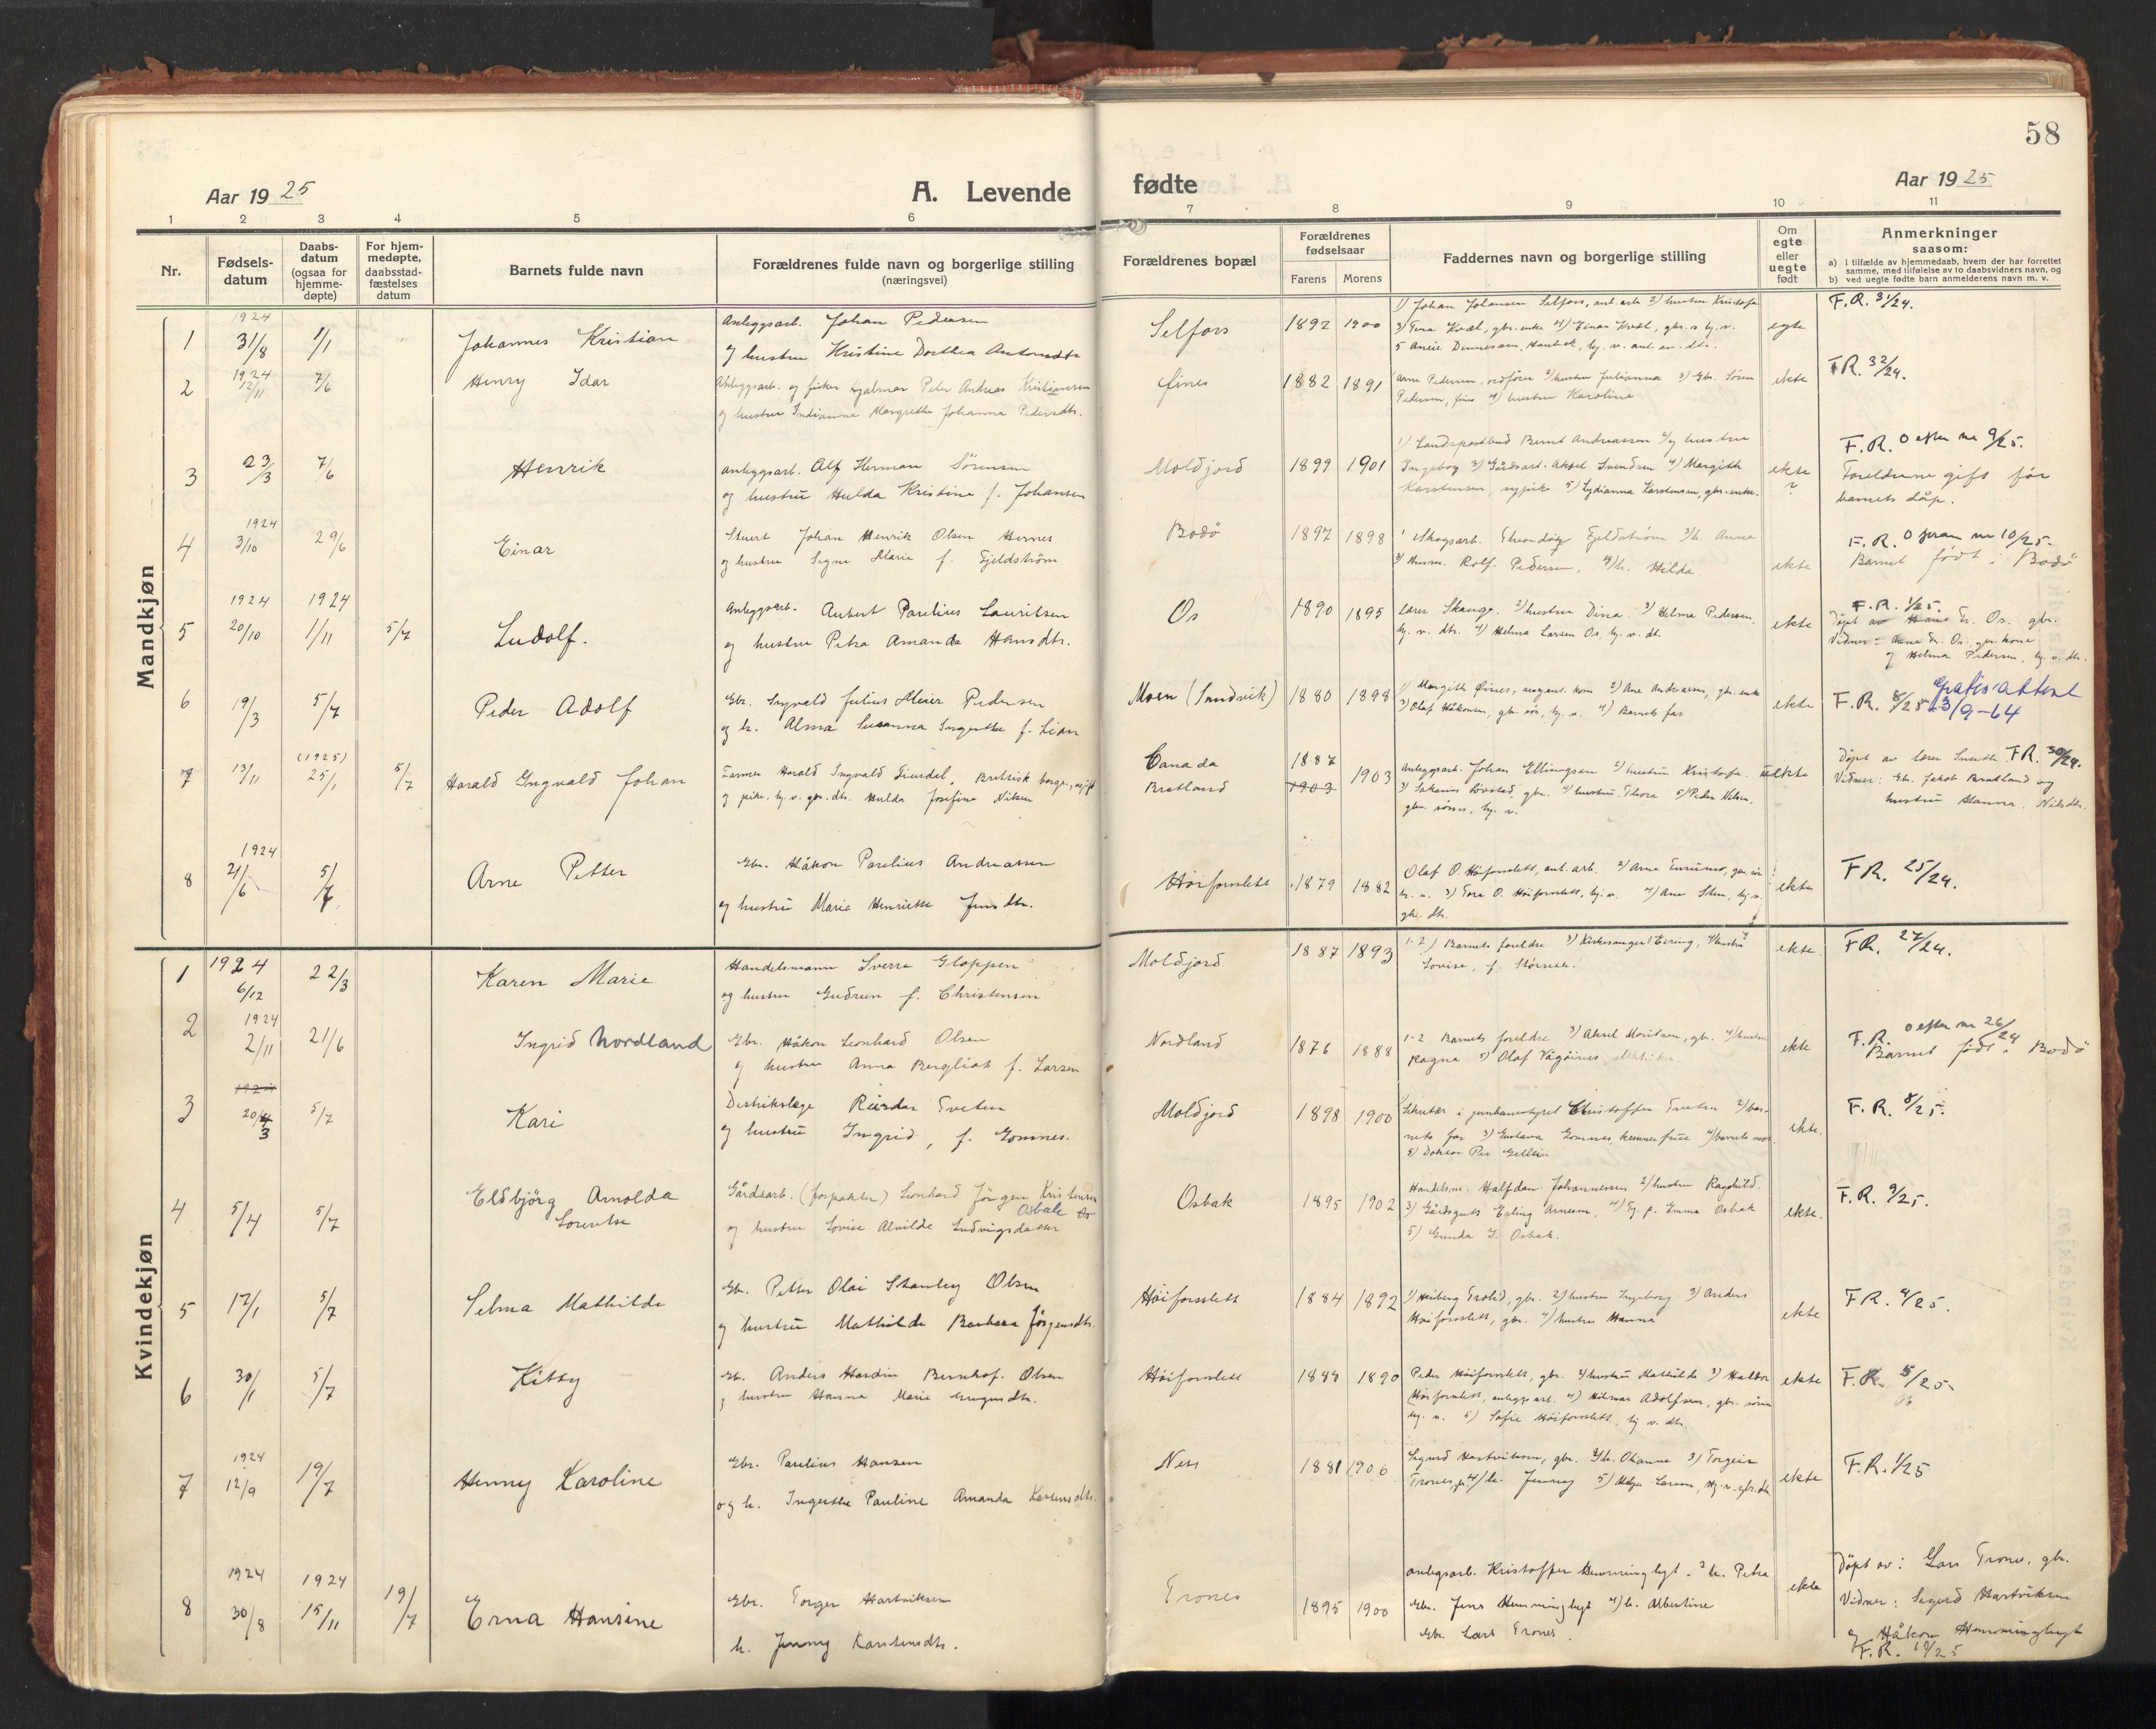 58
Aar 1925
A. Levende
fødte
Aar 1925
1 2 3 4 5 6 7 8 9 10 11
Nr.
Fødsels-
datum
Daabs-
datum
(ogsaa for
hjemme-
døpte)
For hjem-
medøpte,
daabsstad-
fæstelses
datum
Barnets fulde navn
Forældrenes fulde navn og borgerlige stilling
(næringsvei)
Forældrenes bopæl
Forældrenes
fødselsaar
Farens Morens
Faddernes navn og borgerlige stilling
Om
egte
eller
uegte
født
Anmerkninger
saasom:
a) i tilfælde av hjemmedaab, hvem der har forrettet
samme, med tilføielse av to daabsvidners navn, og
b) ved uegte fødte barn anmelderens navn m. v.
Mandkjøn
1 1924 31/8 1/1 Johannes Kristian
Anleggsarb. Johan Pedersen
og hustru Kristine Dorthea
Selfors 1892 1900
1) Johan Johansen Selfors, 2) hustru
egte
F.R. 31/24.
2 1924 12/11 7/6 Henry Idar
Anleggsarb. og fisker Hjalmar Peder Andreas Kristiansen
og hustru Indianna Margrethe Johanna Pedersdtr.
Øines 1882 1891
Arne Pedersen, ordfører 2) hustru Julianna 3) Gbr. Søren
Pedersen, Øines 4) hustru Karoline
ekte
F.R. 32/24.
3 23/3 7/6 Henrik
anleggsarb. Alf Herman Sørensen
og hustru Hulda Kristine f. Johansen
Moldjord 1899 1901
1) Landspostbud Bernt Andreassen 2) og hustru
Ingeborg 3) Gårdsarb. Aksel Svendsen 4) Margith
Karstensen, sypike 5) Lydianna Karstensen, gbr. enke.
ekte ?
F.R. 0 efter nr 9/25.
Foreldrene gift før
barnets dåp.
4 1924 3/10 29/6 Einar
Stuert Johan Henrik Olsen Hernes
og hustru Signe Marie f. Fjeldstrøm
Bodø 1897 1898
1 Skogsarb. Fjeldstrøm 2) h. Anna
3) Rolf. Pedersen, 4) h. Hilda
ekte
F.R. 0 foran nr 10/25.
Barnet født i Bodø
5 1924 20/10 1924 1/11 5/7 Ludolf.
Anleggsarb. Aubert Parelius Lauritsen
og hustru Petra Amanda Hansdtr.
Os 1890 1895
Lærer Skauge. 2) hustru Dina. 3) Helma Pedersen,
hj. v. dtr. 4) Helma Larsen Os, hj. v. dt.
ekte
F.R. 1/25.
Døpt av Hans Os. gbr.
Vidner: Os,
og Helma Pedersen, hj. v. dtr.
6 19/3 5/7 Peder Adolf
Gbr. Sigvald Julius Meier Pedersen
og h. Alma Susanna Ingerthe f. Lian
Moen (Sundvik) 1880 1898
1) Margith Øines, 2) Ane Andersen, gbr. enke
3) Olaf Håkonsen, gbr. søn, hj. v. 4) Barnets far
ekte
F.R. 8/25 Gratis attest
13/9-64
7 13/11 (1925) 25/1 5/7 Harald Ingvald Johan
Farmer Harald Ingvald Brittisk borger, ugift
og pike, hj. v. gbr. dtr. Hulda Josefine Nilsen
Canada
Bratland
1887
1903 1903
Anleggsarb. Johan Ellingsen 2) hustru
4) hustru Thora 5) Peder Nilsen,
gbr. søner, hj. v.
uekte
Døpt av lærer F.R. 30/24.
Vidner: Gbr. Jakob Bratland og
hustru Hanna Nilsdtr.
8 1924 21/6 5/7 Arne Petter
Gbr. Håkon Parelius Andreassen
og hustru Marie Henriette Jensdtr.
Høiforsslett 1879 1882
Olaf O. Høiforsslett, anl. arb. 2) Arne
3) Tora O. Høiforsslett, hj. v. 4) Ane Steen, hj. v.
gbr. dtr.
ekte
F.R. 25/24.
Kvindekjøn
1 1924 6/12 22/3 Karen Marie
Handelsmann Sverre Gloppen
og hustru Gudrun f. Christensen
Moldjord 1887 1893
1-2) Barnets foreldre 3) Kirkesanger 4) hustru
Lovise, f.
ekte
F.R. 27/24.
2 1924 2/11 21/6 Ingrid Nordland
Gbr. Håkon Leonhard Olsen
og hustru Anna Bergliot f. Larsen
Nordland 1876 1888
1-2 Barnets foreldre 3) Aksel Moritsen, gbr. 4) hustru
Ragna 5) Olaf Vågøines, elektriker.
ekte
F.R. 0 efter nr 26/24
Barnet født i Bodø
3 20/3 5/7 Kari
Distrikslæge Reidar Tveten
og hustru Ingrid, f. Gomnes.
Moldjord 1898 1900
Sekretær i jernbanestyret Christoffer Tveten 2) bar-
nets far 3) Gustava Gomnes, 4) barnets mor.
5) Doktor Per
ekte.
F.R. 8/25.
4 5/4 5/7 Eldbjörg Arnolda
Lorentse
Gårdsarb. (forpakter) Leonhard Jörgen Kristensen
Osbak
og hustru Lovise Alvilde Ludvigsdatter
Osbak 1895 1902
Handelsm. Halfdan Johannessen 2) hustru Ragnhild.
3) Gårdsgutt Erling Arnesen, 4) Emma Osbak
5) Gunda J. Osbak.
ekte.
F.R. 9/25.
5 12/1 5/7 Selma Mathilde
Gbr. Petter Olai Stanley Olsen
og hustru Mathilde Barbara Jörgensdtr.
Høiforsslett 1884 1892
1) gbr. 2) hustru Ingeborg 3) Anders
Høiforsslett, gbr. 4) hustru Hanna
ekte
F.R. 4/25.
6 30/1 5/7 Kitty
Gbr. Anders Hardin Bernhof. Olsen
og hustru Hanna Marie
Høiforsslett 1884 1890
Peder Høiforsslett, gbr. 2) hustru Mathilde 3)
Høiforsslett, anleggsarb. 4) Hilmar Adolfsen, gbr. sønn
hj. v. 5) Sofie Høiforsslett, hj. v. dtr.
ekte
F.R. 5/25.
7 1924 12/9 19/7 Henny Karoline
Gbr. Parelius Hansen
og h. Ingerthe Pauline Amanda Karstensdtr.
Nes 1881 1906
Sigurd Hartviksen, gbr. 2) h. 3) Torgeir
Trones, 4) h. Jenny 5) Helga Larsen, hj. v. gbr. dtr.
ekte
F.R. 1/25
8 1924 30/8 1924 15/11 19/7 Erna Hansine
Gbr. Torger Hartviksen
h. Jenny Karstensdtr.
Trones 1895 1900
anlegsarb. Kristoffer Hemminghyt. 2 h. Petra
Gbr. Jens Hemminghyt 4) h. Albertine
Gbr. Lars Trones.
ekte
Døpt av: Lars Trones, gbr.
Vidner: Sigurd Hartviksen
og Håkon Hemminghyt
F.R. 10/25